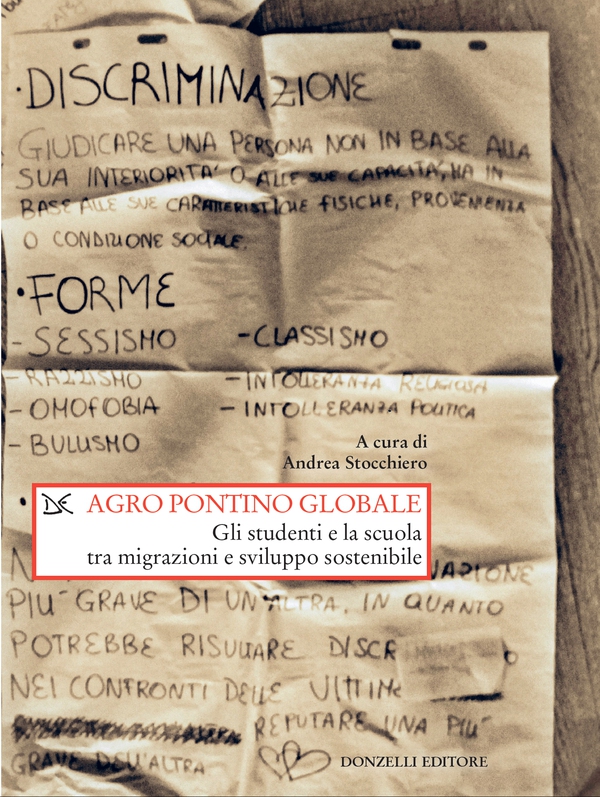 ·DISCRIMINAZIONE
GIUDICARE UNA PERSONA NON IN BASE ALLA
SUA INTERIORITA' O ALLE SUE CAPACITA', MA IN
BASE ALLE SUE CARATTERISTICHE FISICHE, PROVENIENZA
O CONDIZIONE SOCIALE.
·FORME
- SESSISMO - CLASSISMO
- RAZZISMO - INTOLLERANZA RELIGIOSA
- OMOFOBIA - INTOLLERANZA POLITICA
- BULLISMO
A cura di
Andrea Stocchiero
DE AGRO PONTINO GLOBALE
Gli studenti e la scuola
tra migrazioni e sviluppo sostenibile
PIU' GRAVE DI UN'ALTRA, IN QUANTO
POTREBBE RISULTARE DISCR
NEI CONFRONTI DELLE ULTIME
REPUTARE UNA PIU'
GRAVE DELL'ALTRA
DONZELLI EDITORE